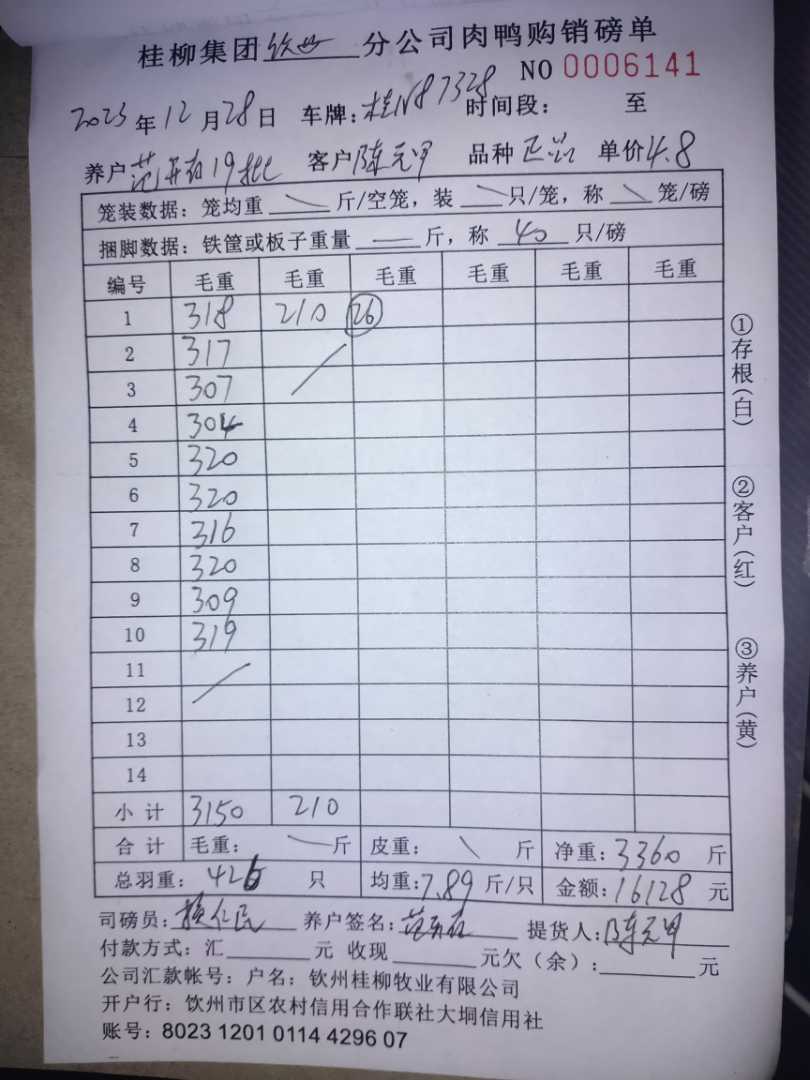 桂柳集团钦州分公司肉鸭购销磅单
NO 0006141
2023年12月28日 车牌:桂N87328 时间段: 至
养户范开存19批 客户陈元甲 品种 正品 单价4.8
笼装数据:笼均重 \ 斤/空笼,装 \ 只/笼,称 \ 笼/磅
捆脚数据:铁筐或板子重量 — 斤,称 40 只/磅
编号 毛重 毛重 毛重 毛重 毛重 毛重
1 318 210 26
2 317
3 307
4 304
5 320
6 320
7 316
8 320
9 309
10 319
11
12
13
14
小计 3150 210
合计 毛重: \ 斤 皮重: \ 斤 净重:3360 斤
总羽重: 426 只 均重:7.89 斤/只 金额:16128 元
司磅员: 仁民 养户签名: 提货人:陈元甲
付款方式:汇 元 收现 元欠(余): 元
公司汇款帐号:户名:钦州桂柳牧业有限公司
开户行:饮州市区农村信用合作联社大垌信用社
账号:8023 1201 0114 4296 07
①存根(白)
②客户(红)
③养户(黄)